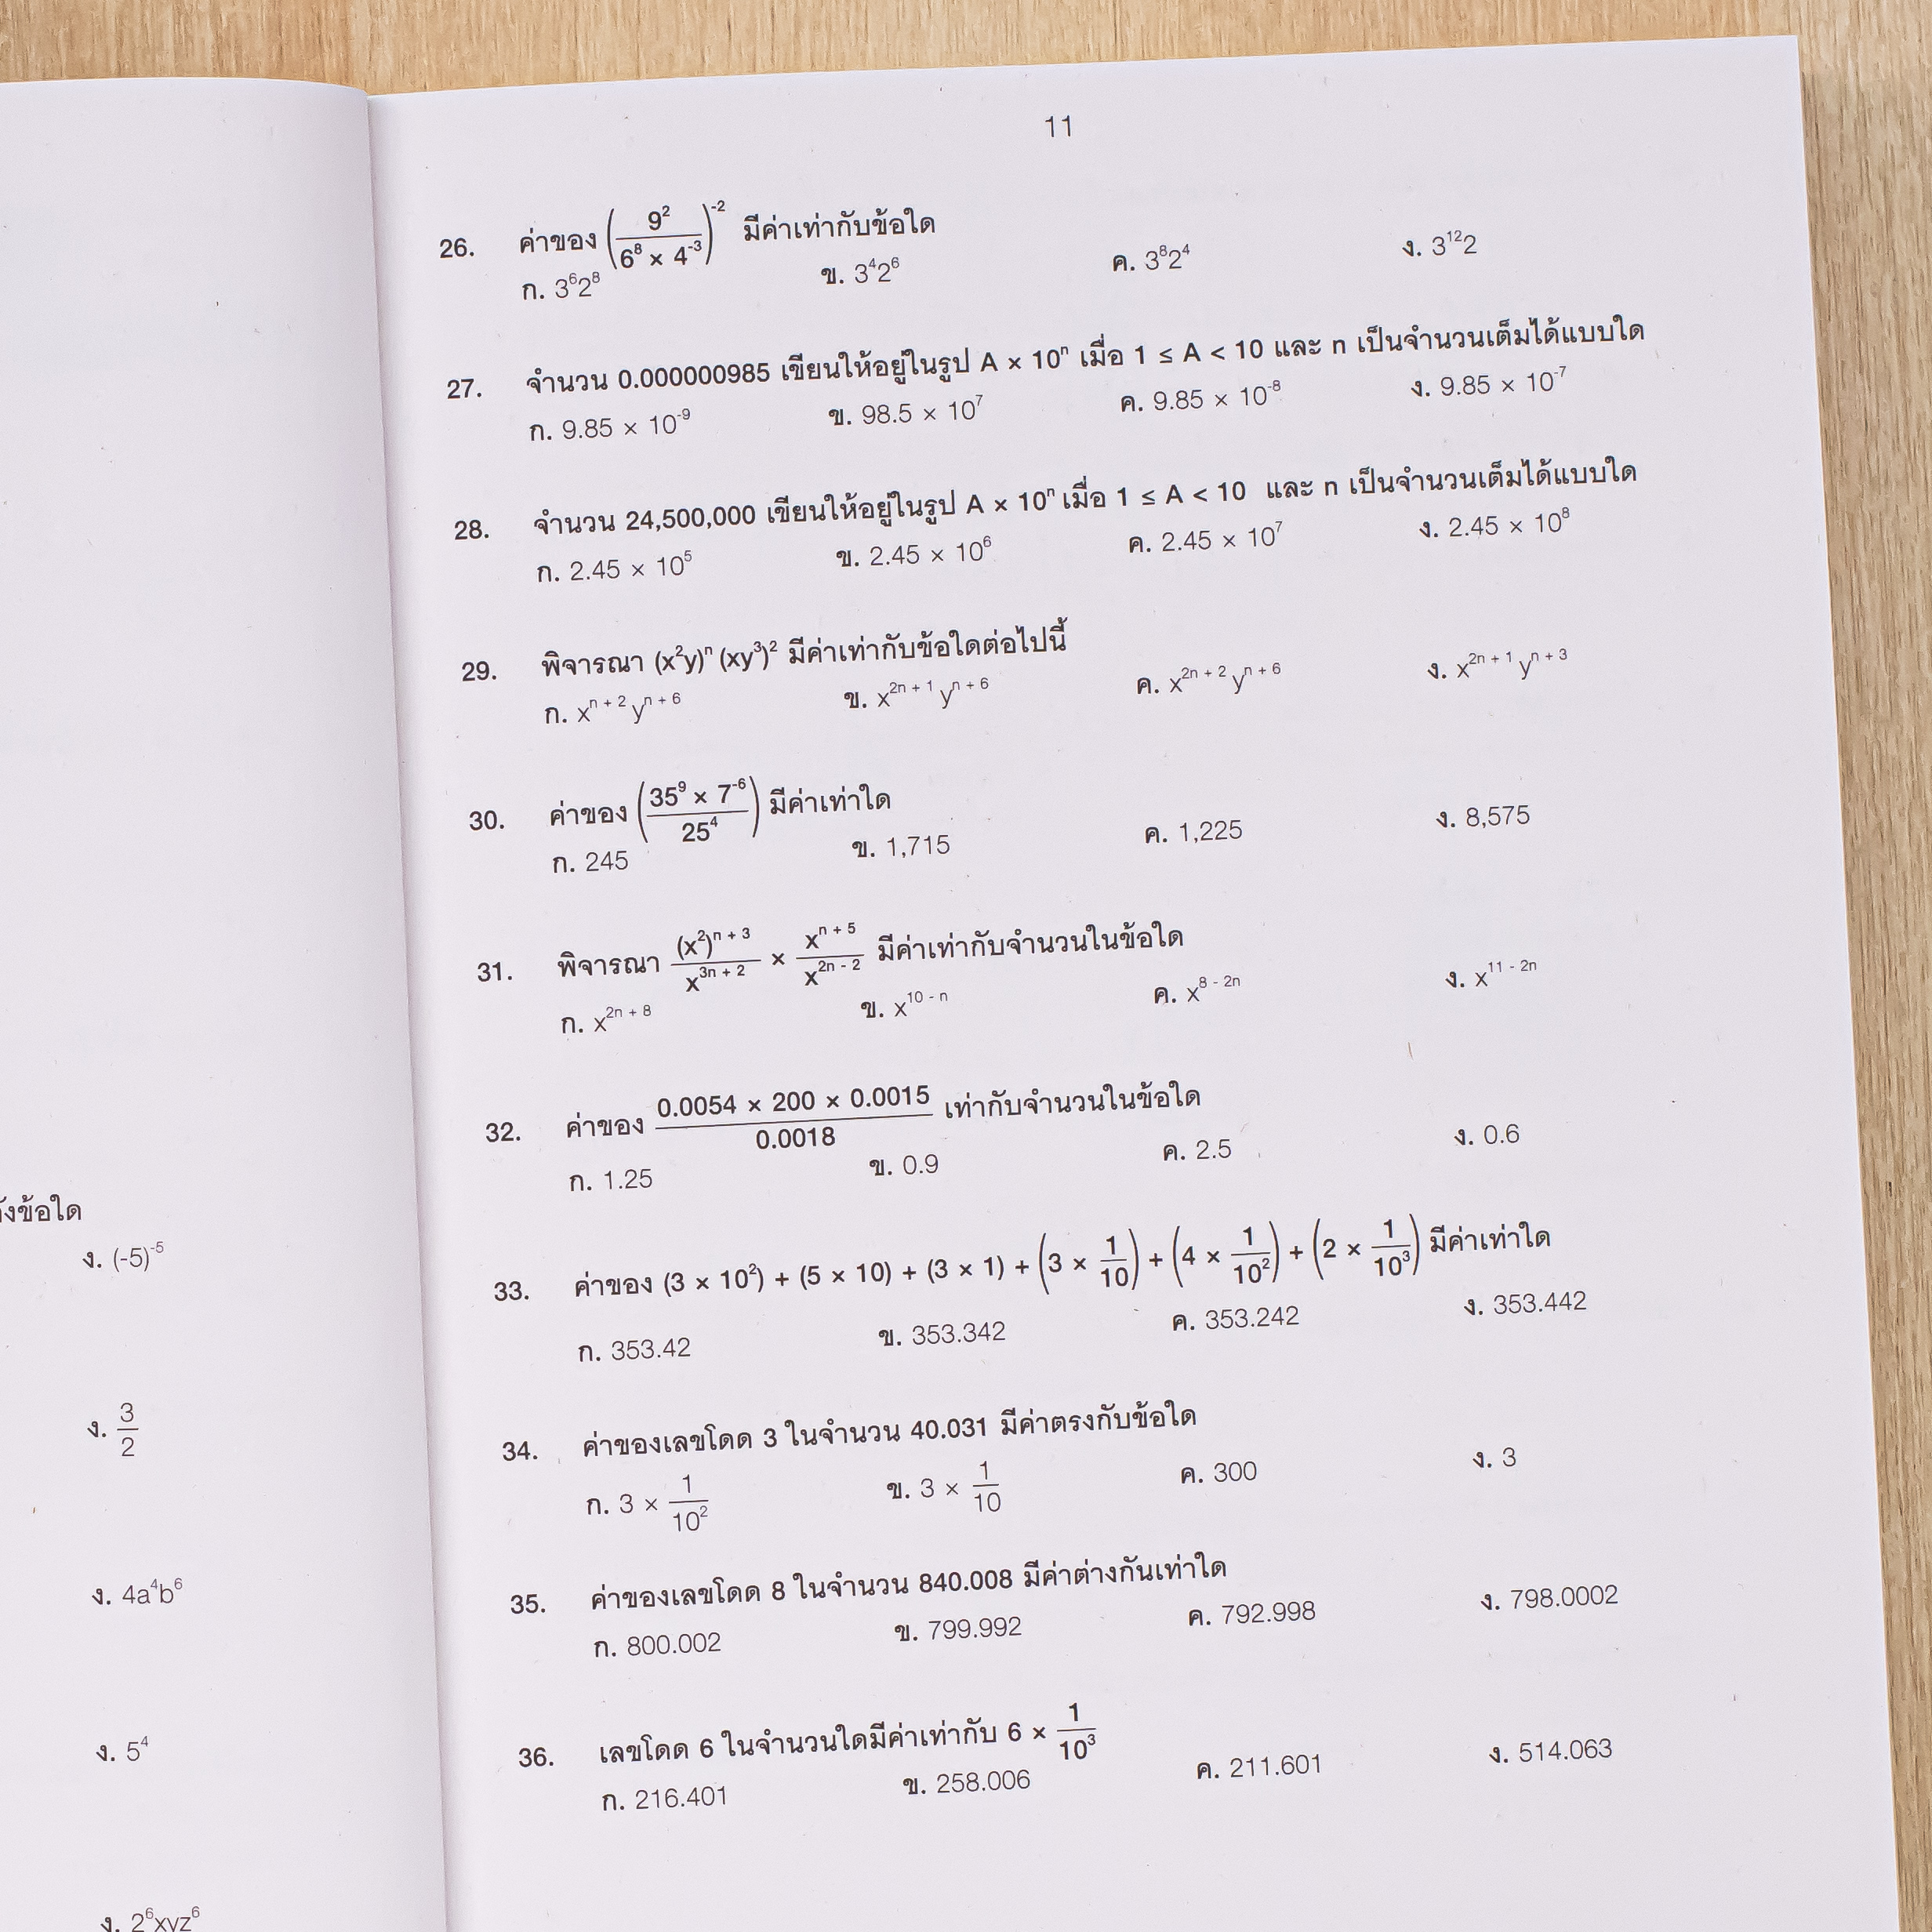 ังข้อใด
ง. (-5)⁻⁵
ง. 3/2
ง. 4a⁴b⁶
ง. 5⁴
ง. 2⁶xyz⁶
11
26. ค่าของ (9² / (6⁸ × 4⁻³))⁻² มีค่าเท่ากับข้อใด
ก. 3⁶2⁸ ข. 3⁴2⁶ ค. 3⁸2⁴ ง. 3¹²2
27. จำนวน 0.000000985 เขียนให้อยู่ในรูป A × 10ⁿ เมื่อ 1 ≤ A < 10 และ n เป็นจำนวนเต็มได้แบบใด
ก. 9.85 × 10⁻⁹ ข. 98.5 × 10⁷ ค. 9.85 × 10⁻⁸ ง. 9.85 × 10⁻⁷
28. จำนวน 24,500,000 เขียนให้อยู่ในรูป A × 10ⁿ เมื่อ 1 ≤ A < 10 และ n เป็นจำนวนเต็มได้แบบใด
ก. 2.45 × 10⁵ ข. 2.45 × 10⁶ ค. 2.45 × 10⁷ ง. 2.45 × 10⁸
29. พิจารณา (x²y)ⁿ (xy³)² มีค่าเท่ากับข้อใดต่อไปนี้
ก. xⁿ ⁺ ² yⁿ ⁺ ⁶ ข. x²ⁿ ⁺ ¹ yⁿ ⁺ ⁶ ค. x²ⁿ ⁺ ² yⁿ ⁺ ⁶ ง. x²ⁿ ⁺ ¹ yⁿ ⁺ ³
30. ค่าของ ((35⁹ × 7⁻⁶) / 25⁴) มีค่าเท่าใด
ก. 245 ข. 1,715 ค. 1,225 ง. 8,575
31. พิจารณา (x²)ⁿ ⁺ ³ / x³ⁿ ⁺ ² × xⁿ ⁺ ⁵ / x²ⁿ ⁻ ² มีค่าเท่ากับจำนวนในข้อใด
ก. x²ⁿ ⁺ ⁸ ข. x¹⁰ ⁻ ⁿ ค. x⁸ ⁻ ²ⁿ ง. x¹¹ ⁻ ²ⁿ
32. ค่าของ (0.0054 × 200 × 0.0015) / 0.0018 เท่ากับจำนวนในข้อใด
ก. 1.25 ข. 0.9 ค. 2.5 ง. 0.6
33. ค่าของ (3 × 10²) + (5 × 10) + (3 × 1) + (3 × 1/10) + (4 × 1/10²) + (2 × 1/10³) มีค่าเท่าใด
ก. 353.42 ข. 353.342 ค. 353.242 ง. 353.442
34. ค่าของเลขโดด 3 ในจำนวน 40.031 มีค่าตรงกับข้อใด
ก. 3 × 1/10² ข. 3 × 1/10 ค. 300 ง. 3
35. ค่าของเลขโดด 8 ในจำนวน 840.008 มีค่าต่างกันเท่าใด
ก. 800.002 ข. 799.992 ค. 792.998 ง. 798.0002
36. เลขโดด 6 ในจำนวนใดมีค่าเท่ากับ 6 × 1/10³
ก. 216.401 ข. 258.006 ค. 211.601 ง. 514.063